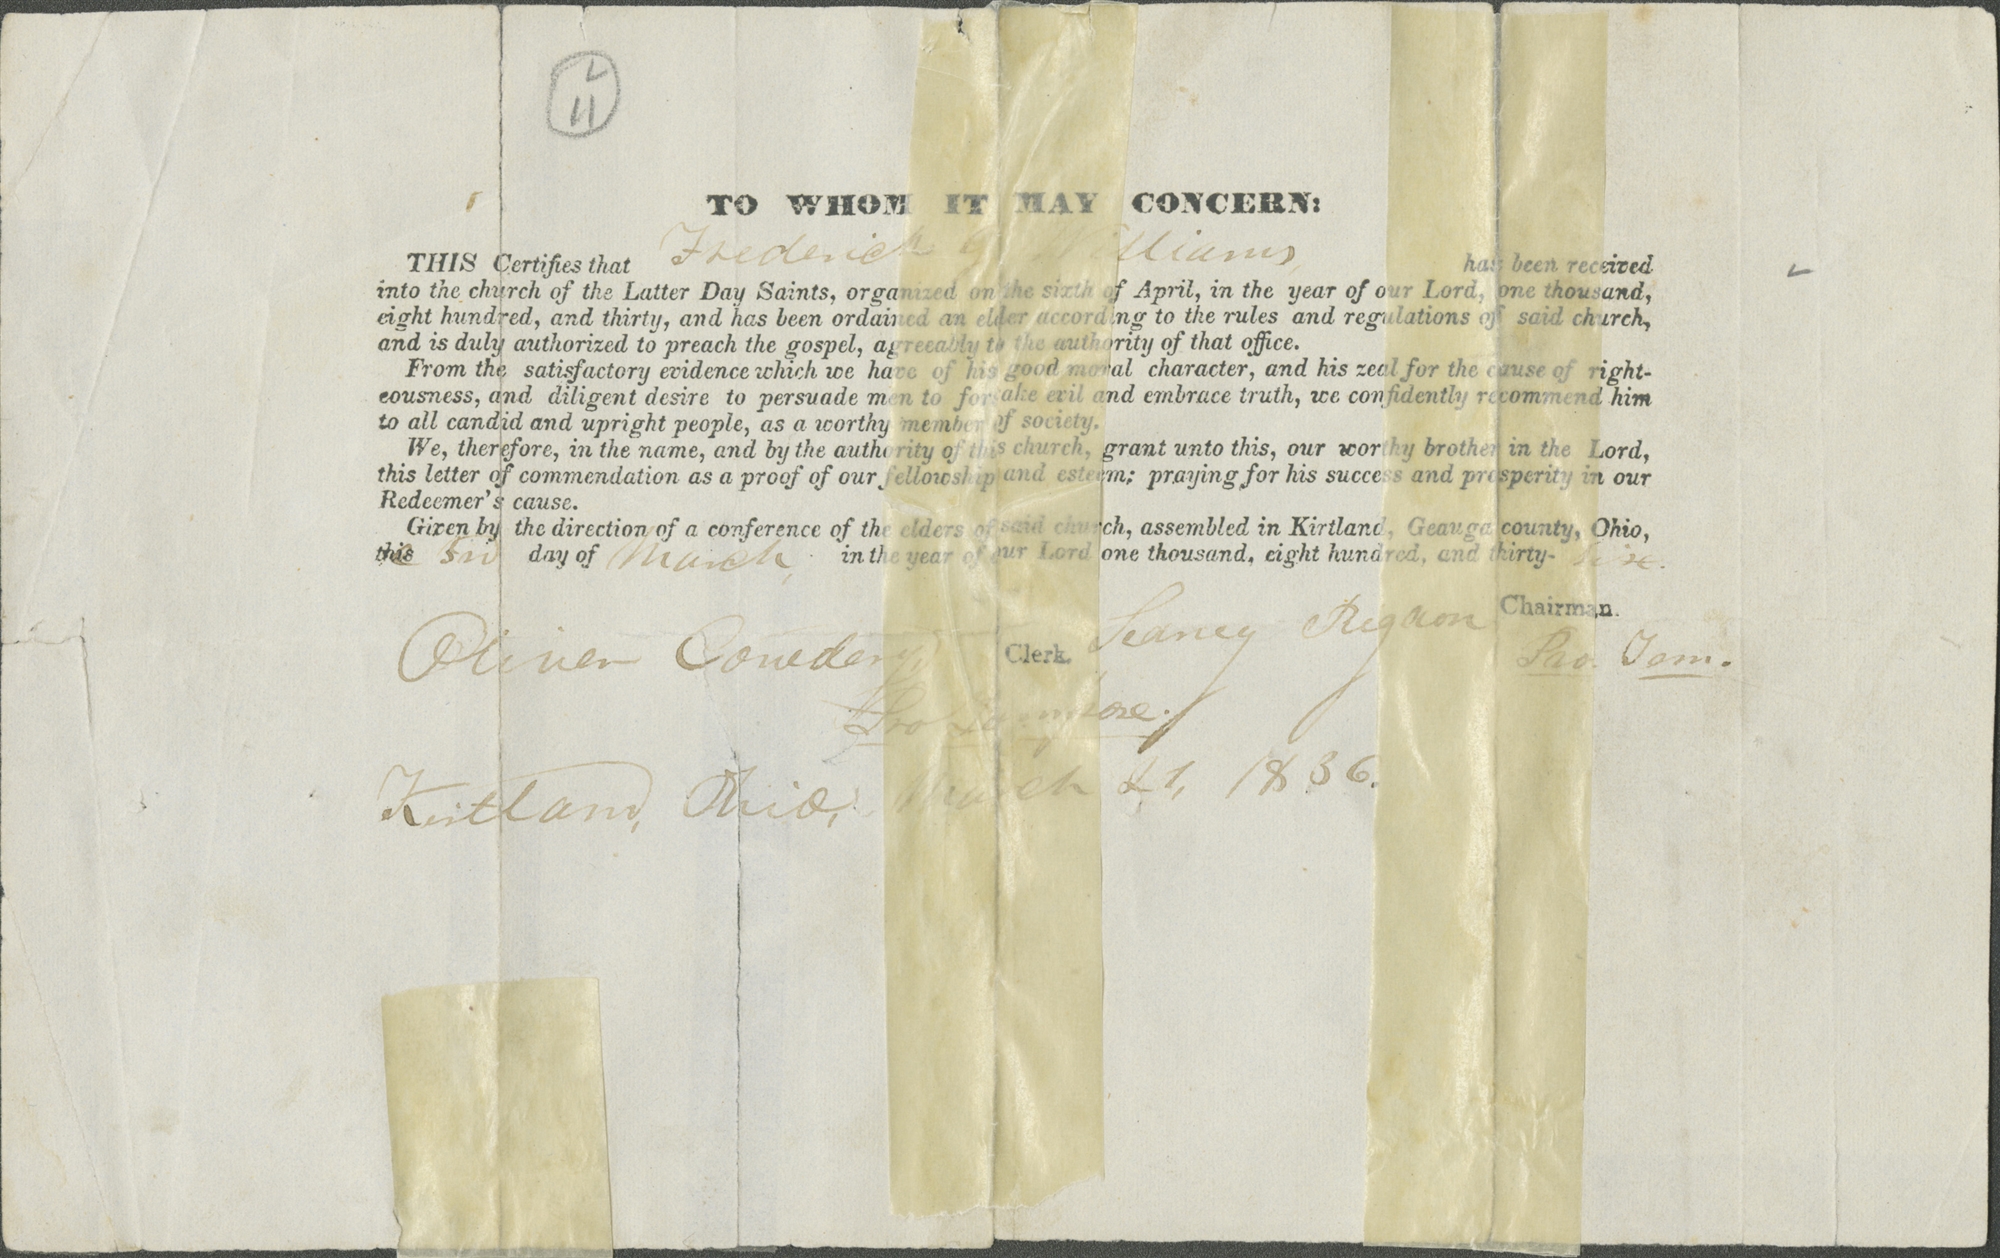 11
TO WHOM IT MAY CONCERN:
THIS Certifies that Frederick G Williams, has been received
into the church of the Latter Day Saints, organized on the sixth of April, in the year of our Lord, one thousand,
eight hundred, and thirty, and has been ordained an elder according to the rules and regulations of said church,
and is duly authorized to preach the gospel, agreeably to the authority of that office.
From the satisfactory evidence which we have of his good moral character, and his zeal for the cause of right-
eousness, and diligent desire to persuade men to forsake evil and embrace truth, we confidently recommend him
to all candid and upright people, as a worthy member of society.
We, therefore, in the name, and by the authority of this church, grant unto this, our worthy brother in the Lord,
this letter of commendation as a proof of our fellowship and esteem; praying for his success and prosperity in our
Redeemer's cause.
Given by the direction of a conference of the elders of said church, assembled in Kirtland, Geauga county, Ohio,
the day of March, in the year of our Lord one thousand, eight hundred, and thirty- six.
Sidney Rigdon Chairman.
Oliver Cowdery, Clerk. Pro. Tem.
Pro tempore.
Kirtland, Ohio, March 21, 1836.